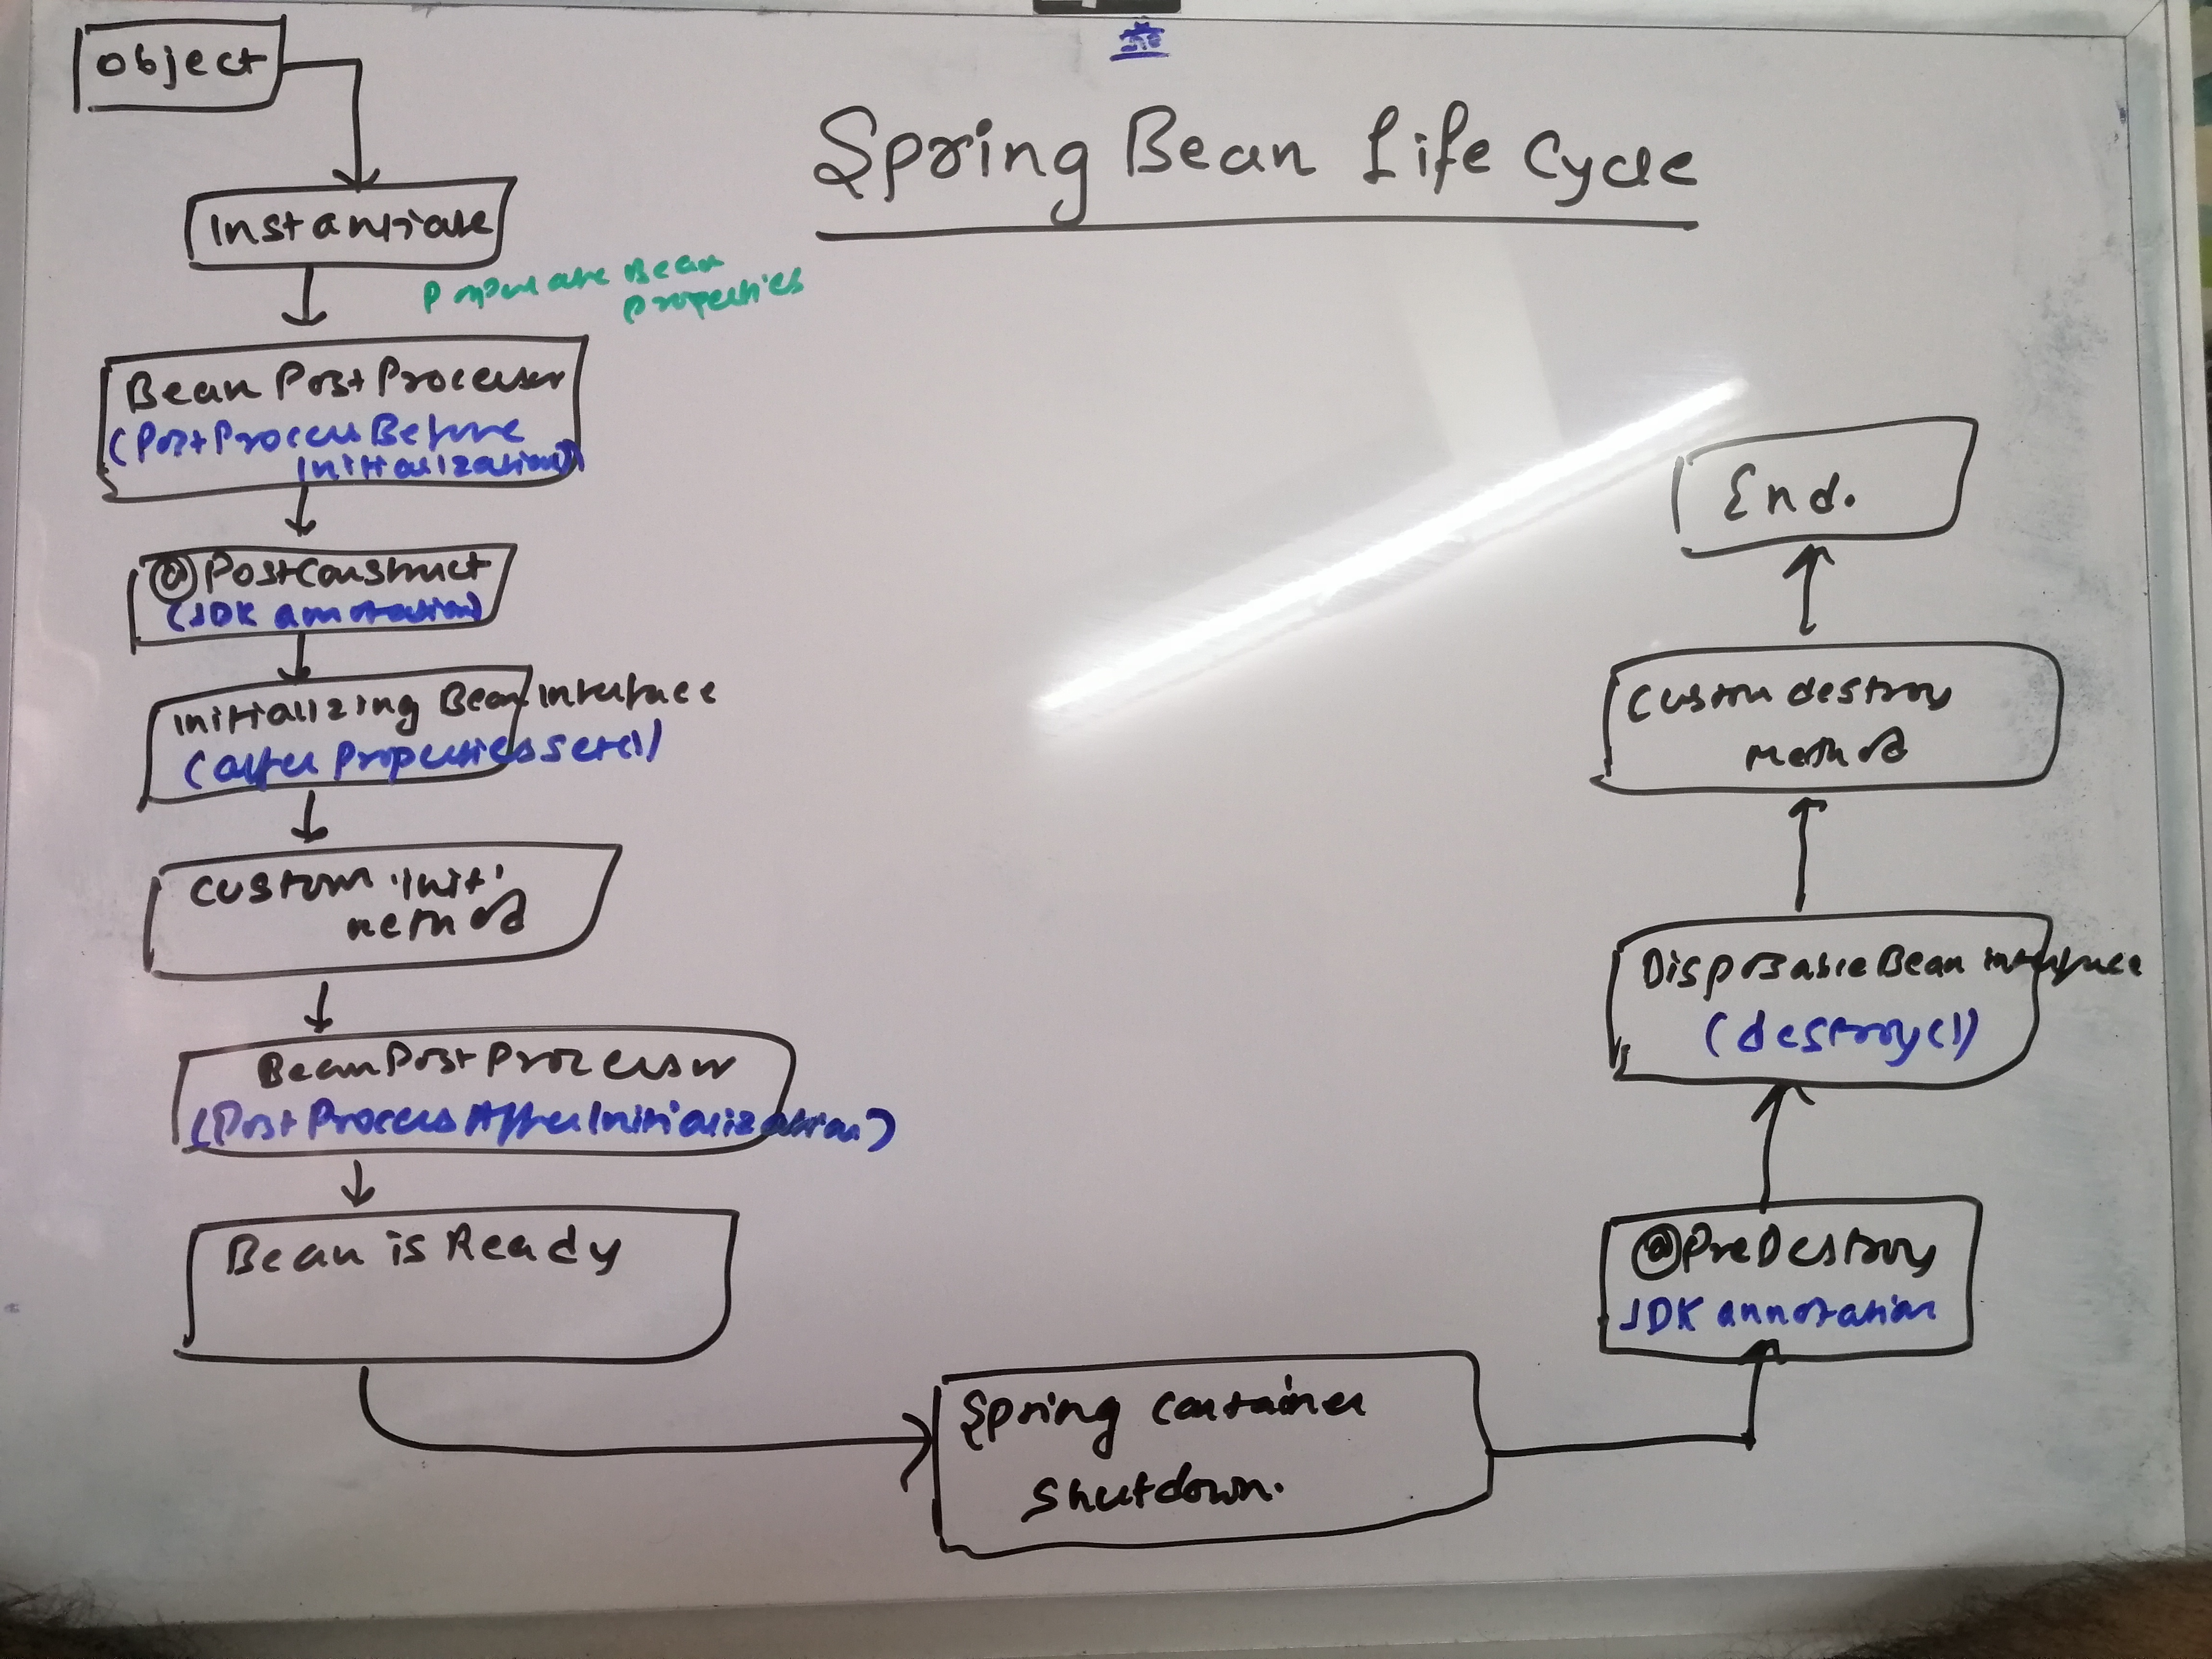 Object
Spring Bean Life Cycle
Instantiate
Populate Bean
Properties
Bean PostProcessor
(PostProcessBefore
Initialization)
@PostConstruct
(JDK annotation)
Initializing Bean Interface
(after PropertiesSet())
Custom 'init'
method
BeanPostProcessor
(PostProcessAfterInitialization)
Bean is Ready
Spring container
shutdown.
@PreDestroy
JDK annotation
DisposableBean interface
(destroy())
Custom destroy
method
End.